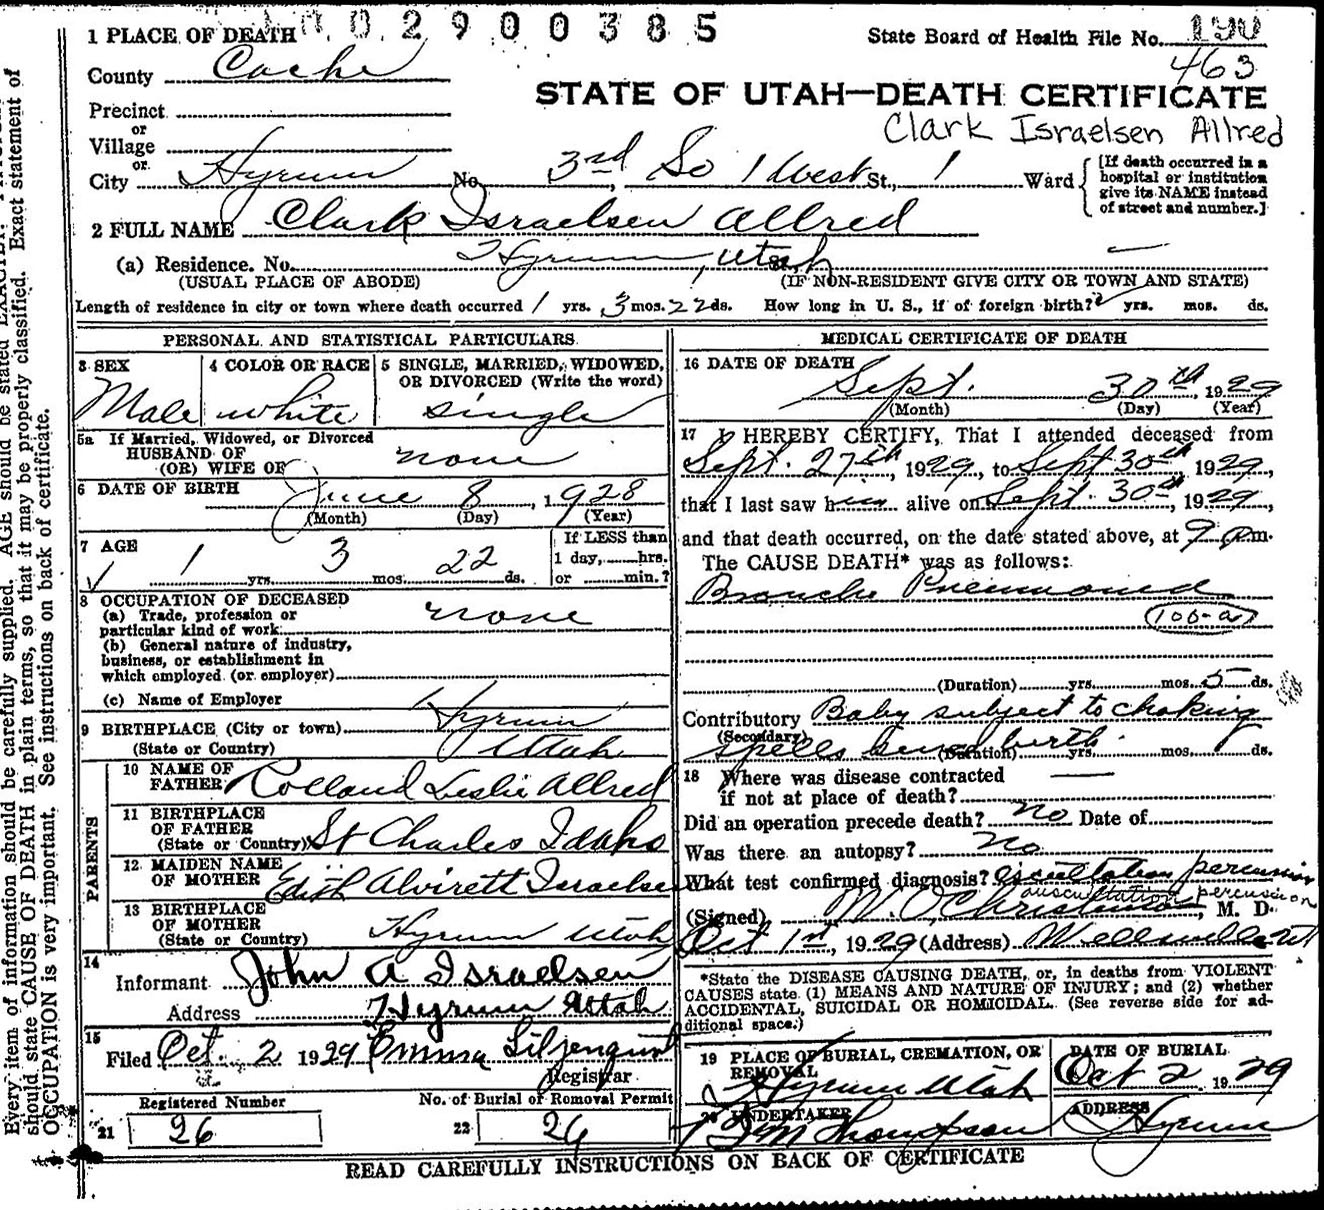 0 2 9 0 0 3 8 5
1 PLACE OF DEATH
State Board of Health File No. 190
463
County Cache
STATE OF UTAH—DEATH CERTIFICATE
Clark Israelsen Allred
Precinct
or
Village
or
City Hyrum No. 3rd So 1 West St., 1 Ward
[If death occurred in a hospital or institution give its NAME instead of street and number.]
2 FULL NAME Clark Israelsen Allred
(a) Residence. No. Hyrum, Utah
(USUAL PLACE OF ABODE) (IF NON-RESIDENT GIVE CITY OR TOWN AND STATE)
Length of residence in city or town where death occurred 1 yrs. 3 mos. 22 ds. How long in U. S., if of foreign birth? yrs. mos. ds.
PERSONAL AND STATISTICAL PARTICULARS
3 SEX 4 COLOR OR RACE 5 SINGLE, MARRIED, WIDOWED,
OR DIVORCED (Write the word)
Male white single
5a If Married, Widowed, or Divorced
HUSBAND OF
(OR) WIFE OF none
6 DATE OF BIRTH June 8, 1928
(Month) (Day) (Year)
7 AGE
1 yrs. 3 mos. 22 ds.
If LESS than
1 day, hrs.
or min.?
8 OCCUPATION OF DECEASED
(a) Trade, profession or
particular kind of work none
(b) General nature of industry,
business, or establishment in
which employed (or employer)
(c) Name of Employer
9 BIRTHPLACE (City or town) Hyrum
(State or Country) Utah
PARENTS
10 NAME OF
FATHER Rolland Leslie Allred
11 BIRTHPLACE
OF FATHER
(State or Country) St Charles Idaho
12 MAIDEN NAME
OF MOTHER Edith Alvirett Israelsen
13 BIRTHPLACE
OF MOTHER
(State or Country) Hyrum Utah
14
Informant John A Israelsen
Address Hyrum Utah
15
Filed Oct. 2 1929 Emma Liljenquist
Registrar
Registered Number No. of Burial or Removal Permit
21 26 22 26
MEDICAL CERTIFICATE OF DEATH
16 DATE OF DEATH
Sept. 30th, 1929
(Month) (Day) (Year)
17 I HEREBY CERTIFY, That I attended deceased from
Sept. 27th, 1929, to Sept 30th, 1929,
that I last saw him alive on Sept. 30th, 1929,
and that death occurred, on the date stated above, at 9 p.m.
The CAUSE DEATH* was as follows:
Bronche Pneumonia
100-a
(Duration) yrs. mos. 5 ds.
Contributory Baby subject to choking
(Secondary)
spells since birth.
(Duration) yrs. mos. ds.
18 Where was disease contracted
if not at place of death?
Did an operation precede death? no Date of
Was there an autopsy? no
What test confirmed diagnosis? ascultation percussion
auscultation percussion
(Signed) W. O. Christensen, M. D.
Oct 1st, 1929 (Address) Wellsville Ut
*State the DISEASE CAUSING DEATH, or, in deaths from VIOLENT
CAUSES state (1) MEANS AND NATURE OF INJURY; and (2) whether
ACCIDENTAL, SUICIDAL OR HOMICIDAL. (See reverse side for ad-
ditional space.)
19 PLACE OF BURIAL, CREMATION, OR
REMOVAL
Hyrum Utah
DATE OF BURIAL
Oct 2 1929
20 UNDERTAKER
Thompson
ADDRESS
Hyrum
READ CAREFULLY INSTRUCTIONS ON BACK OF CERTIFICATE
Every item of information should be carefully supplied. AGE should be stated EXACTLY.
should state CAUSE OF DEATH in plain terms, so that it may be properly classified. Exact statement of
OCCUPATION is very important. See instructions on back of certificate.